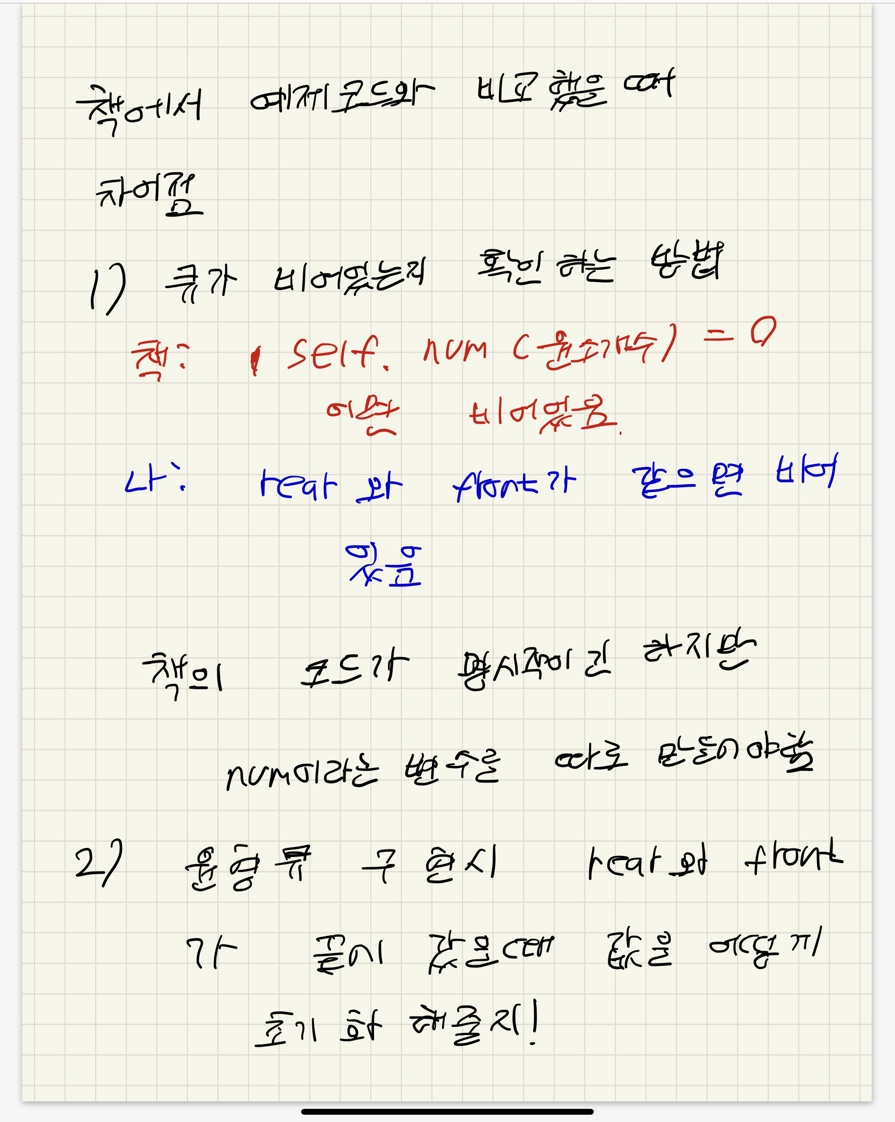 책에서 예제코드와 비교했을 때
차이점
1) 큐가 비어있는지 확인하는 방법
책: self. num (원소개수) = 0
이면 비어있음.
나: rear 와 front가 같으면 비어
있음
책의 코드가 명시적이긴 하지만
num이라는 변수를 따로 만들어야함
2) 원형큐 구현시 rear와 front
가 끝에 갔을때 값을 어떻게
초기화 해줄지!